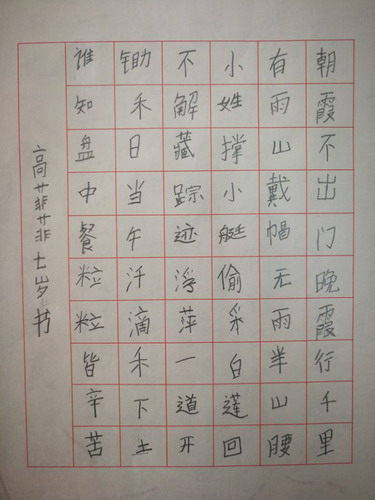 朝霞不出门晚霞行千里
有雨山戴帽无雨半山腰
小娃撑小艇偷采白莲回
不解藏踪迹浮萍一道开
锄禾日当午汗滴禾下土
谁知盘中餐粒粒皆辛苦
高菲菲七岁书